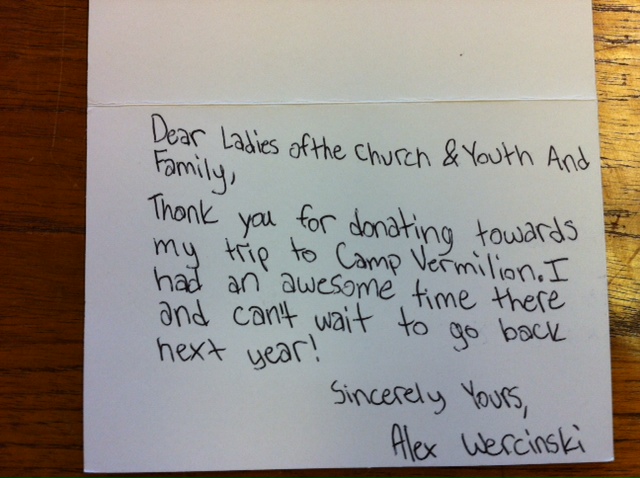 Dear Ladies of the Church & Youth And
Family,
Thank you for donating towards
my trip to Camp Vermilion. I
had an awesome time there
and can't wait to go back
next year!
Sincerely Yours,
Alex Wercinski